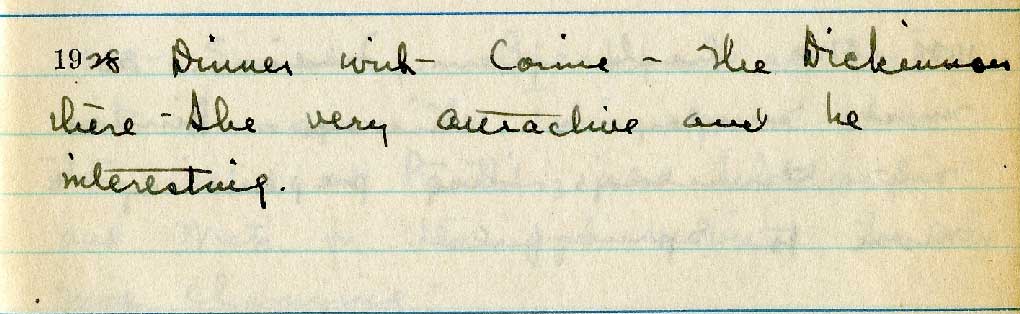 1928 Dinner with Corine - The Dickinsons
there - she very attractive and he
interesting.